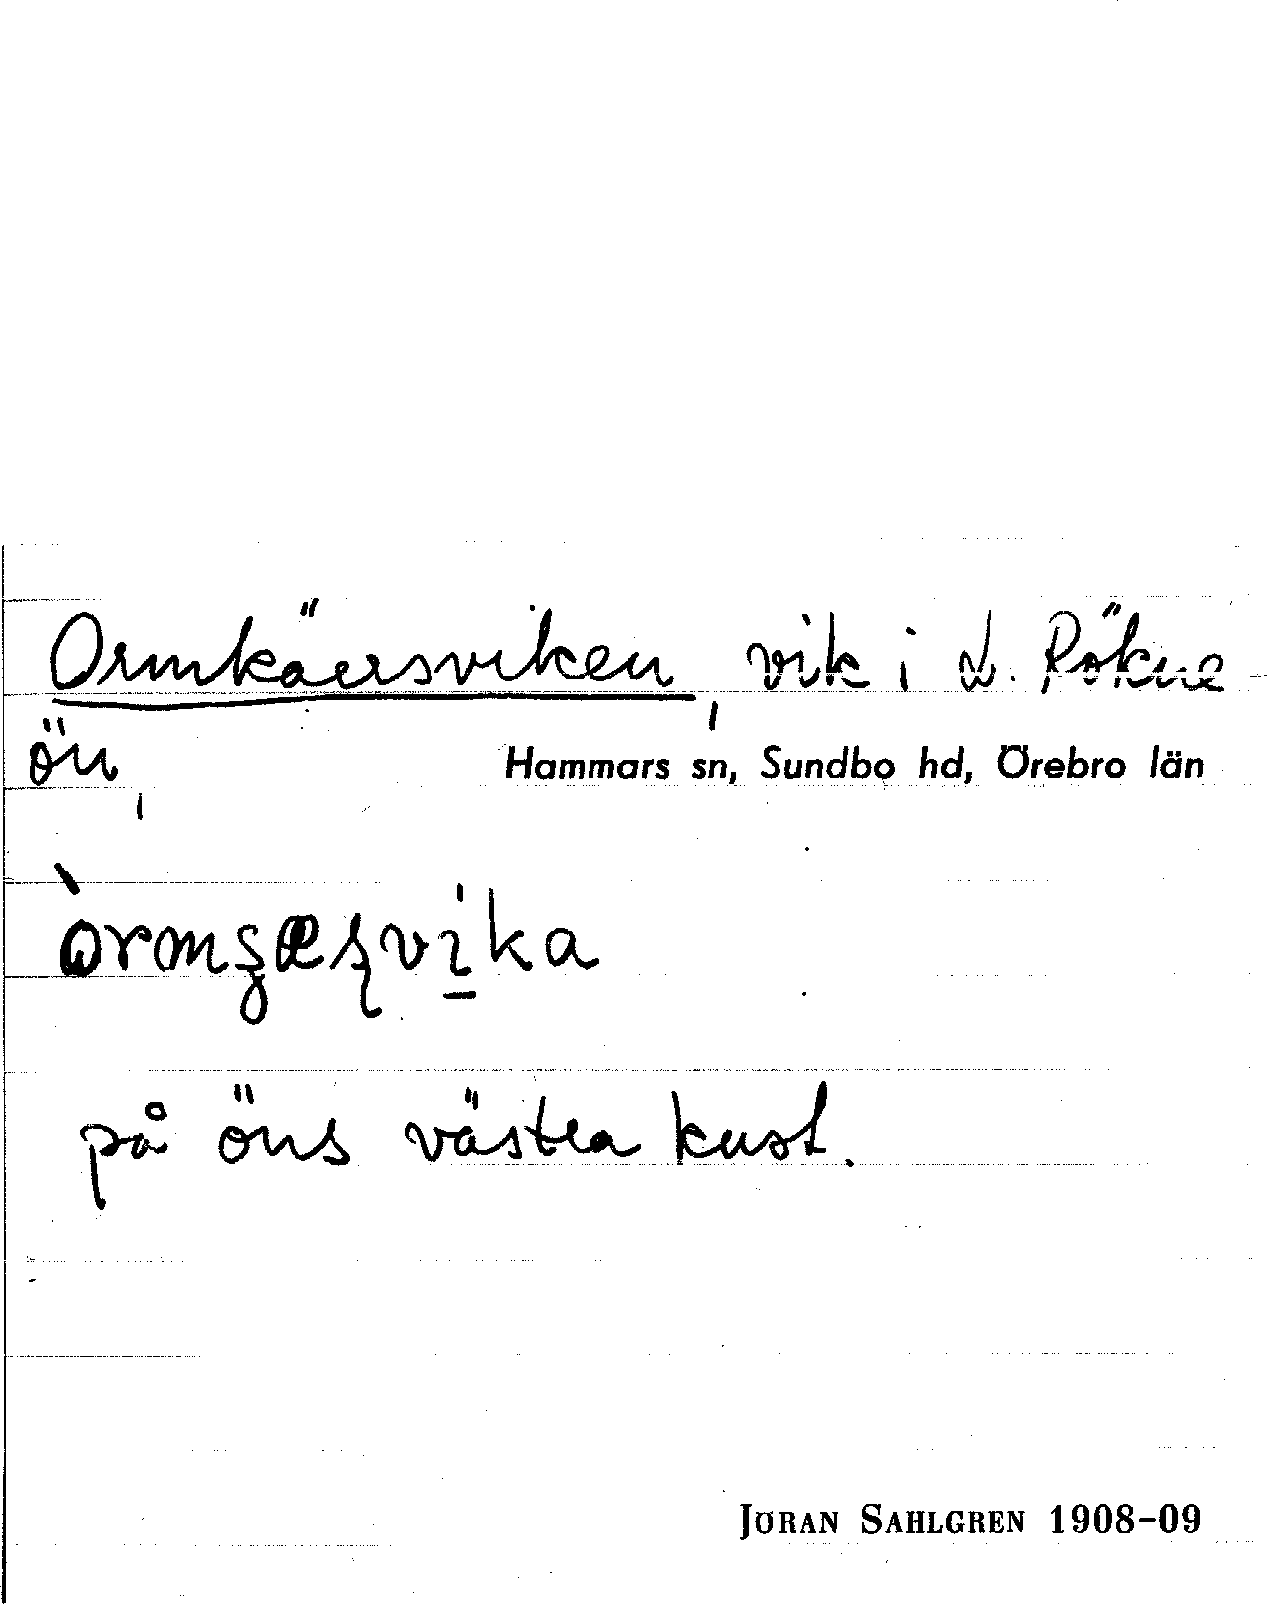 Ormkärrsviken, vik i L. Rökne-
ön,
Hammars sn, Sundbo hd, Örebro län
på öns västra kust.
JÖRAN SAHLGREN 1908-09